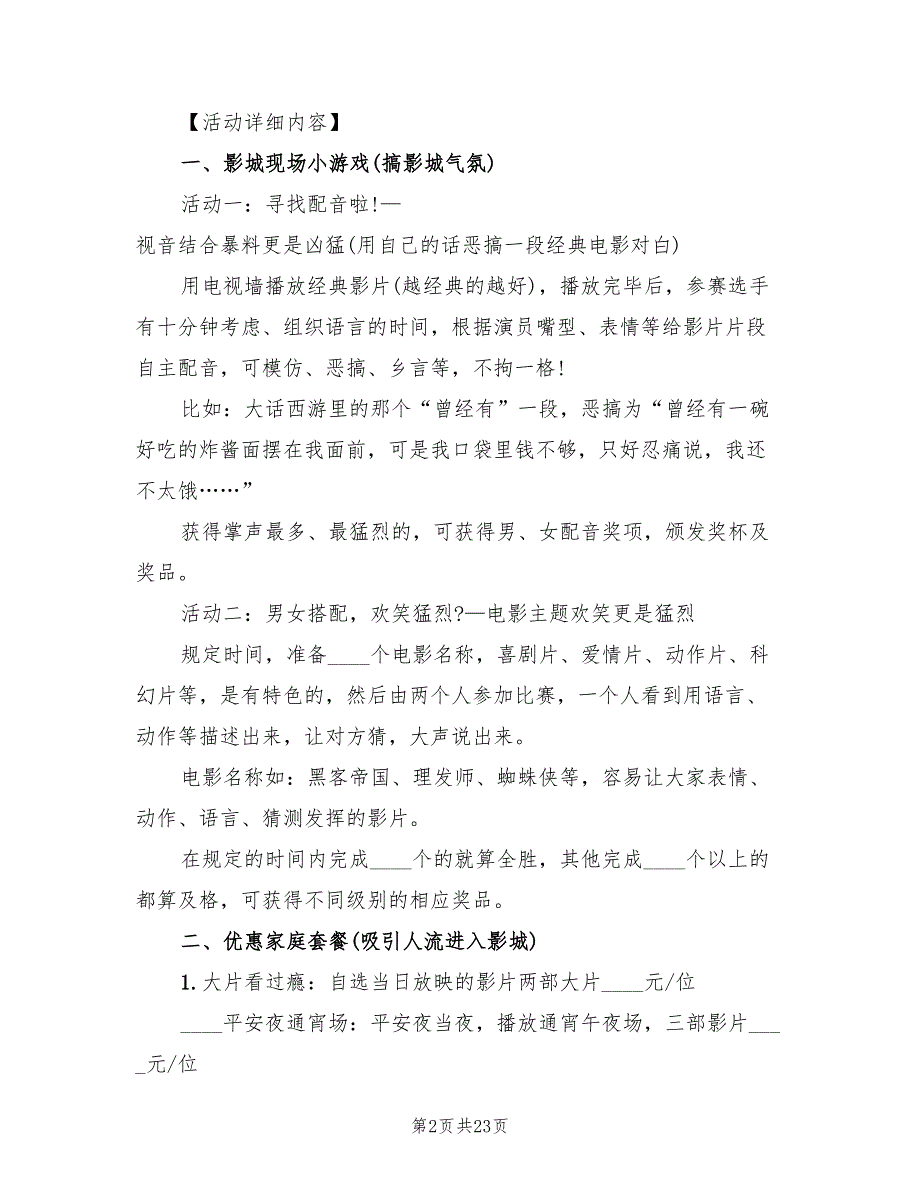 【活动详细内容】
一、影城现场小游戏(搞影城气氛)
活动一：寻找配音啦!—
视音结合暴料更是凶猛(用自己的话恶搞一段经典电影对白)
用电视墙播放经典影片(越经典的越好)，播放完毕后，参赛选手
有十分钟考虑、组织语言的时间，根据演员嘴型、表情等给影片片段
自主配音，可模仿、恶搞、乡言等，不拘一格!
比如：大话西游里的那个“曾经有”一段，恶搞为“曾经有一碗
好吃的炸酱面摆在我面前，可是我口袋里钱不够，只好忍痛说，我还
不太饿……”
获得掌声最多、最猛烈的，可获得男、女配音奖项，颁发奖杯及
奖品。
活动二：男女搭配，欢笑猛烈?—电影主题欢笑更是猛烈
规定时间，准备____个电影名称，喜剧片、爱情片、动作片、科
幻片等，是有特色的，然后由两个人参加比赛，一个人看到用语言、
动作等描述出来，让对方猜，大声说出来。
电影名称如：黑客帝国、理发师、蜘蛛侠等，容易让大家表情、
动作、语言、猜测发挥的影片。
在规定的时间内完成____个的就算全胜，其他完成____个以上的
都算及格，可获得不同级别的相应奖品。
二、优惠家庭套餐(吸引人流进入影城)
1.大片看过瘾：自选当日放映的影片两部大片____元/位
____平安夜通宵场：平安夜当夜，播放通宵午夜场，三部影片___
_元/位
第2页共23页